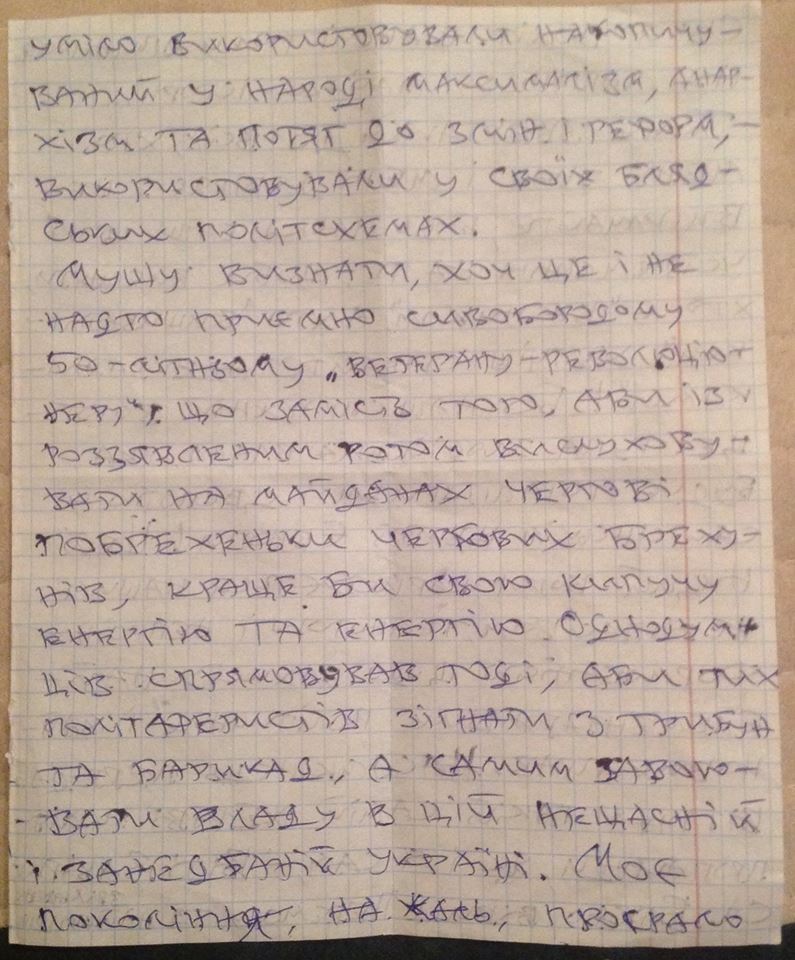 уміло використовували накопичу-
ваний у народі максималізм, анар-
хізм та потяг до змін і реформ, -
використовували у своїх бляд-
ських політсхемах.
Мушу визнати, хоч це і не
надто приємно сивобородому
50-літньому „ветерану-революціо-
неру", що замість того, аби із
роззявленим ротом вислухову-
вати на майданах чергові
побрехеньки чергових бреху-
нів, краще би свою кипучу
енергію та енергію однодум-
ців спрямовував тоді, аби тих
політаферистів зігнати з трибун
та барикад, а самим завою-
вати владу в цій нещасній
і занедбаній Україні. Моє
покоління, на жаль, просрало